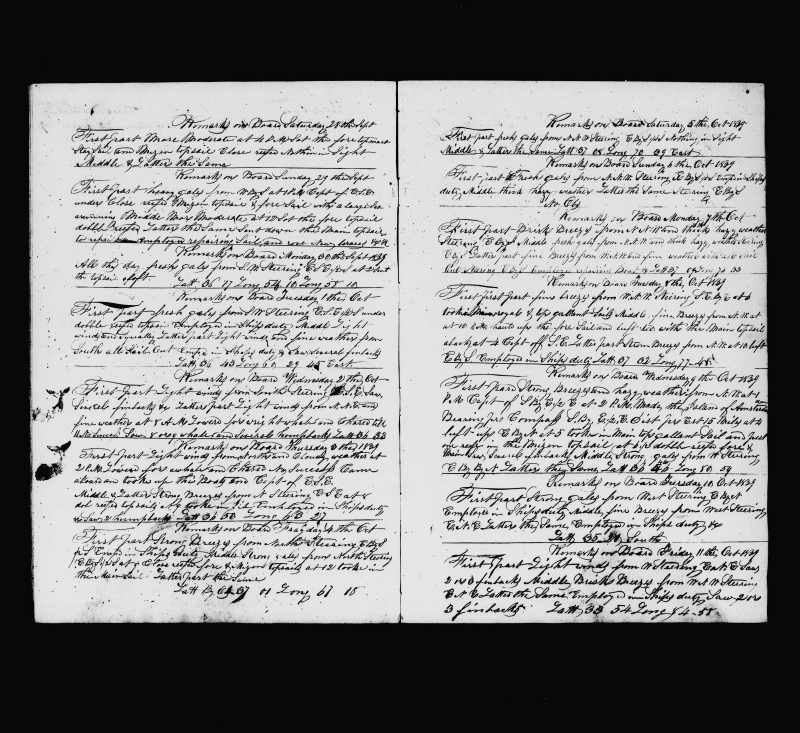 Remarks on Board Saturday 28 th Sept
First part More Moderate at 4 P.M Set the fore topmast
Stay Sail and Mizen topsail Close reefed Nothin in Sight
Middle & Latter the Same
Remarks on Board Sunday 29 th Sept
First part heavy gales from W By S at P.M Kept of E.S.E
under Close reefed Mizen topsail & fore Sail with a large Sea
running Middle More Moderate at 12 Set the fore topsail
dobble reefed Latter the Same Sent down the Main topsail
to repair Employed repairing Sails and
Remarks on Board Monday 30 th Sept 1839
All this day fresh gales from S.W Steering
the topsail
Latt 36 17 Long 54 10
Remarks on Board Tuesday 1 the Oct
First part fresh gales from W Steering E.S.E under
dobble reefed topsail Employed in Ships duty Middle Light
winds and Latter part Light winds and fine weather from
South all Sail Out Emp in Ships duty & Saw Severals finbacks
Latt 36 43 Long 60 29 East
Remarks on Board Wednesday 2 the Oct
First part Light winds from South Steering E.S.E Saw
Severl finbacks Latter part Light winds from N.N.E and
fine weather at 7 A.M Lowered for wright whale and Chased till
11 Saw whale and Severals humpbacks Latt 36 33
Remarks on Board Thursday 3 the 1839
First part Light winds from North and Cloudy weather at
2 P.M Lowered for a whale and Chased No Success Came
aboard an took up the Boats and Kept of E.S.E
Middle & Latter Strong Breezes from N Steering E.S.E at 8
dobl reefed topsails at 9 took in Jib Employed in Ships duty
& Saw 2 humpbacks Latt 37 58 Long 63 27
Remarks on Board Frayday 4 the Oct
First part Strong Breezes from North Stearing E By S
1/2 S Emp in Ships duty Middle Strong gales from North Steering
E By S 1/2 S at 8 Close reefed fore & Mizen topsails at 12 took in
the Main Sail Latter part the Same
Latt By 37 01 Long 67 15
Remarks on Board Saturday 5 the Oct 1839
First part fresh gales from N.W Steering E By S 1/2 S Nothing in Sight
Middle & Latter the Same Latt 37 05 Long 70 09 East
Remarks on Board Sunday 6 the Oct 1839
First part fresh gales from N.N.W Steering E By S 1/2 S Emp in Ships
duty, Middle thick hazy weather Latter the Same Steering E By S
No Obs
Remarks on Board Monday 7th Oct
First part Brisk Breezes from N.N.W and thick hazy weather
Steering E By S Middle fresh gales from N.N.W and thick hazy weather Steering
E By S Latter part fine Breezes from N.W and fine weather
Out Steering E By S Employed repairing Boat Latt 37 01 Long 73 33
Remarks on Board Tuesday 8 the Oct 1839
First part fine breezes from W.N.W Steering S.E By E at 6
took in Main royal & top gallant Sails Middle fine Breezes from N.W at
at 10 P.M hauld up the fore Sail and Luft to with the Main topsail
aback at 4 Kept off S.E Latter part Strom Breezes from N.W at 10 Luft
E By S Employed in Ships duty Latt 37 03 Long 77 48
Remarks on Board Wednesday 9 th Oct 1839
First part Strong Breezes and hazy weather from N.W at 1
P.M Kept of S By E 1/2 E at 2 P.M Made the Island of Amsterdam
Bearing Per Compass S By E 1/2 E Dist per Ort 15 Miles at 4
Luft up E By N at 5 took in Main top gallant Sail and put
one reef in the Mizen topsail at 6 dobble reefed fore &
Main Saw Several finbacks Middle Strong gales from W Steering
E By N Latter the Same Latt 36 Long 80 59
Remarks on Board Thursday 10 Oct 1839
First part Strong gales from West Steering E By N
Employed in Ships duty Middle fine Breezes from West Steering
E.N.E Latter the Same Employed in Ships duty
Latt 35 South
Remarks on Board Friday 11 the Oct 1839
First part Light winds from W Steering E.N.E Saw
2 or 3 finbacks Middle Brisk Breezes from W.N.W Steering
E.N.E Latter the Same Employed in Ships duty Saw 2 or
3 finbacks Latt 33 54 Long 84 58